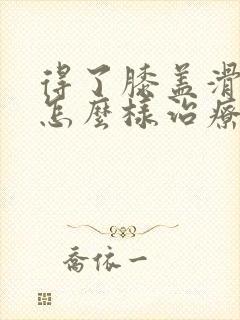 得了膝盖滑
怎麼樣治療
喬依一